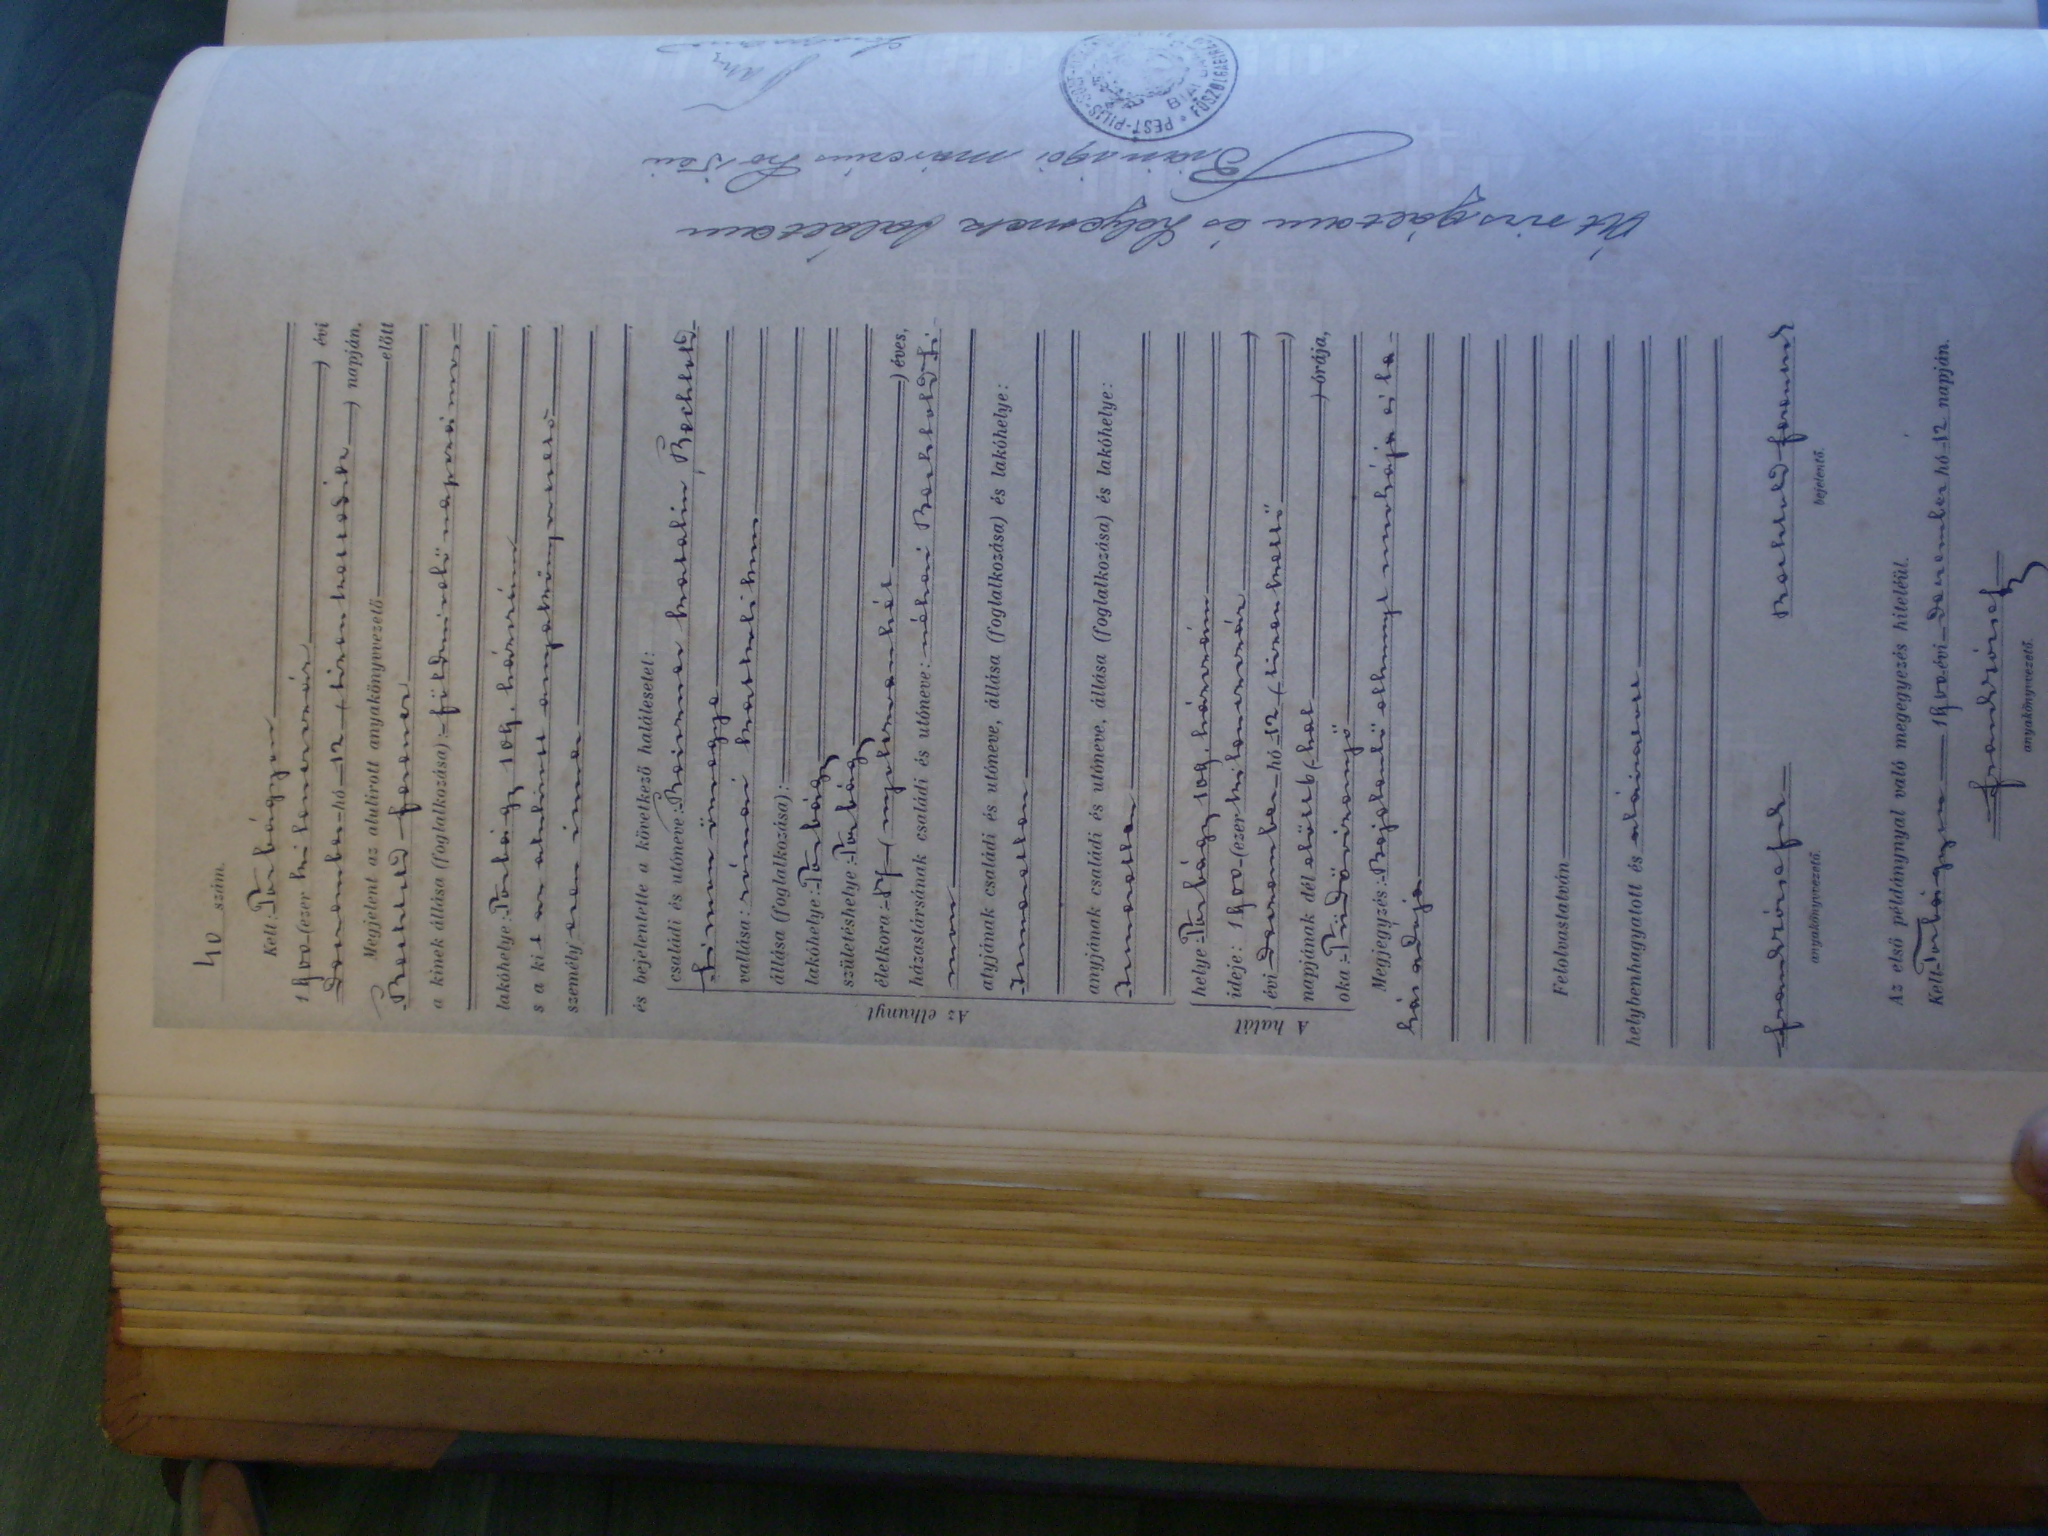 40 szám.
Kelt: Torbágyon
1900 (ezerkilencszáz) évi
December hó 12 (tizenkettedik) napján.
Megjelent az alulirott anyakönyvezető előtt
Bechtold Ferencz
a kinek állása (foglalkozása): földmivelő napszámos
lakóhelye: Torbágy 109. házszám
s a kit az alulirott anyakönyvvezető
személyesen ismer
és bejelentette a következő halálesetet:
Az elhunyt
családi és utóneve: Katalin, Bechtold
Simon özvegye
vallása: római katholikus
állása (foglalkozása):
lakóhelye: Torbágy
születéshelye: Torbágy
életkora: éves,
házastársának családi és utóneve: néhai Bechtold Si-
mon
atyjának családi és utóneve, állása (foglalkozása) és lakóhelye:
Ismeretlen
anyjának családi és utóneve, állása (foglalkozása) és lakóhelye:
Ismeretlen
A halál
helye: Torbágy 109. házszám
ideje: 1900 (ezerkilencszáz)
évi december hó 12 (tizenkettő)
napjának dél előtt 6 (hat) órája,
oka: Tüdővizenyő
Megjegyzés: Bejelentő elhunyt unokája és la-
kásadója
Felolvastatván
helybenhagyatott és aláiratott
anyakönyvezető.
Bechtold Ferencz
bejelentő.
Az első példánynyal való megegyezés hiteléül.
Kelt Torbágyon 1900 évi december hó 12 napján.
anyakönyvezető.
Átvizsgáltam és helyesnek találtam
PEST-PILIS-SOLT-
FŐSZOLGABIRÁJA